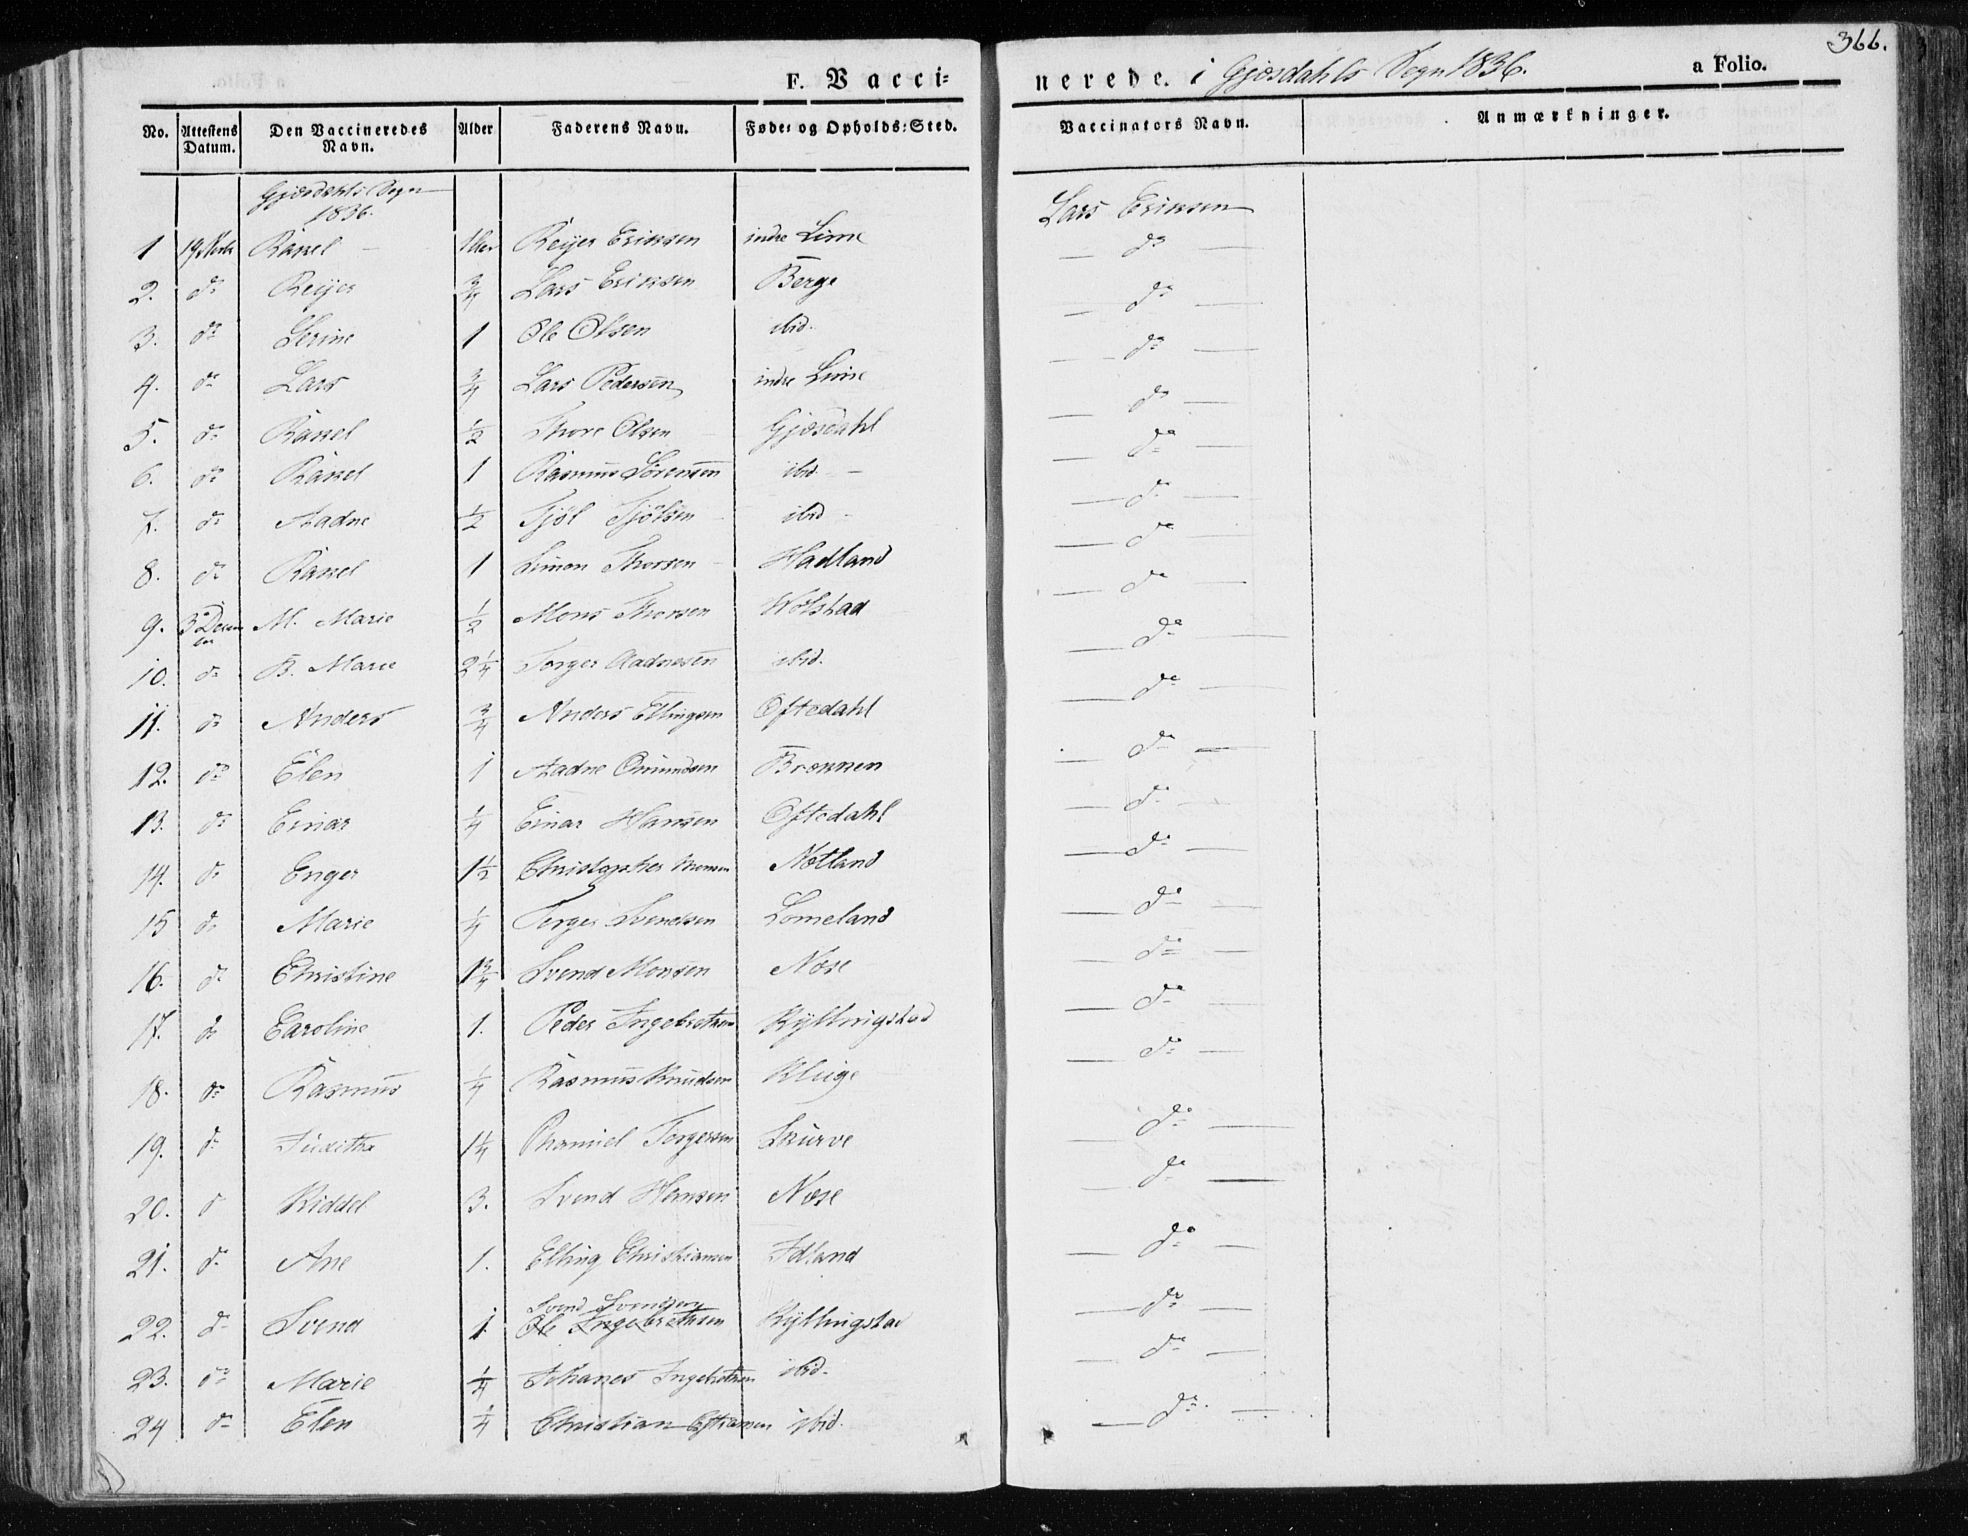 366.
F. Vacci=
nerede. i Gjæsdahls Sogn 1836.
a Folio.
No. Attestens Datum. Den Vaccineredes Navn. Alder Faderens Navn. Føde= og Opholds=Sted. Vaccinators Navn. Anmærkninger.
Gjæsdahls Sogn
1836. Lars Eriksen
1 19 Rakel 1 Reijer Eriksen indre Lime do
2. do Reijer 3/4 Lars Eriksen Berge do
3. do Serine 1 Ole Olsen ibid. do
4. do Lars 3/4 Lars Pedersen indre Lime do
5. do Rakel 1/2 Thore Olsen Gjæsdahl do
6. do Rakel 1 Rasmus Sörensen ibid do
7. do Aadne 1/2 Tjöl Tjölsen ibid do
8. do Rakel 1 Simon Thorsen Hadland do
9. 3 M. Marie 1/2 Mons Thorsen Wölstad do
10. do B. Marie 2 1/4 Torger Aadnesen ibid. do
11. do Anders 3/4 Anders Ellingsen Oftedahl do
12. do Elen 1 Aadne Omundsen Brekken do
13. do Einar 1/4 Einar Hansen Oftedahl do
14. do Enger 1 1/2 Christopher Nætland do
15 do Marie 1/4 Torger Svendsen Lomeland do
16. do Christine 1 3/4 Svend Monsen Næse do
17. do Caroline 1. Peder Ingebretsen Kyllingstad do
18. do Rasmus 1/4 Rasmus Knudsen Kluge do
19. do 1 1/4 Torgersen Skurve do
20. do Riddel 3. Svend Hansen Næse do
21. do Ane 1. Elling Christiansen Idland do
Svend Svendsen
22. do Svend 1. Ole Ingebrethsen Kyllingstad do
23. do Marie 1/4 Johanes Ingebretsen ibid. do
24 do Elen 1/4 Christian ibid. do